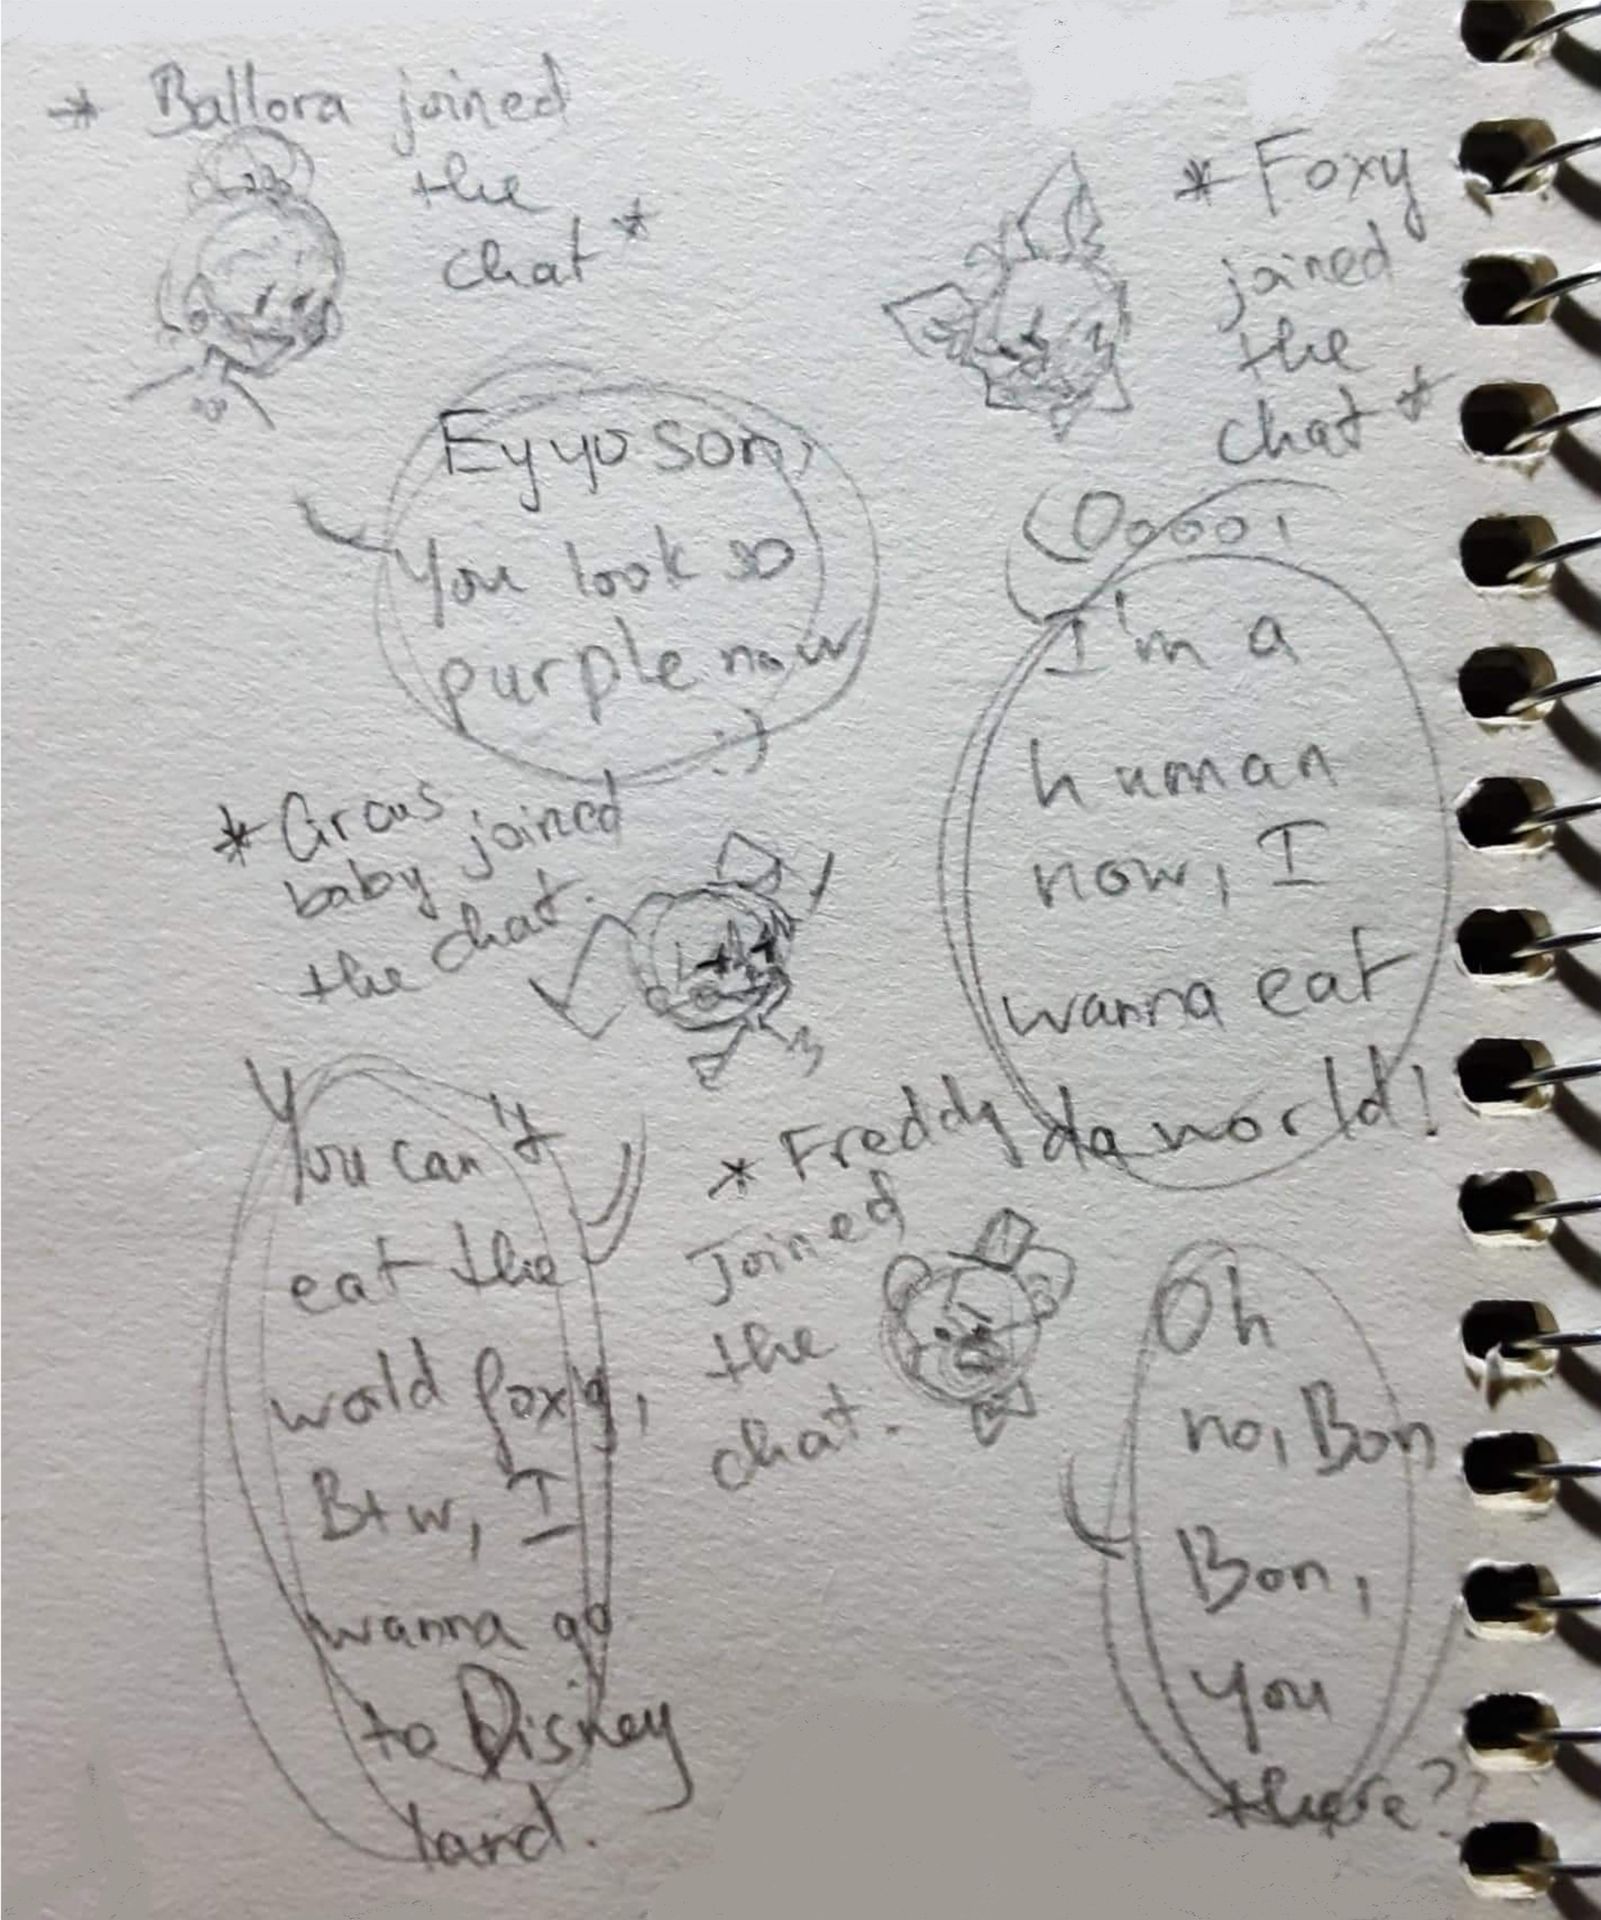 * Ballora joined
the
chat *
Eyyo son,
You look so
purple now
:)
* Foxy
joined
the
chat *
Ooooi
I'm a
human
now, I
wanna eat
da world!
* Circus
baby joined
the chat.
You can't
eat the
world foxy,
Btw, I
wanna go
to Disney
land.
* Freddy
Joined
the
chat.
Oh
no, Bon
Bon,
you
there??